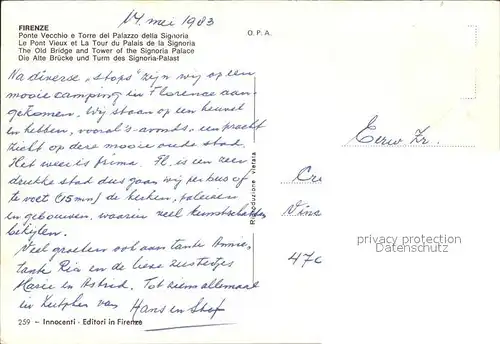 14 mei 1983
FIRENZE
O. P. A.
Ponte Vecchio e Torre del Palazzo della Signoria
Le Pont Vieux et La Tour du Palais de la Signoria
The Old Bridge and Tower of the Signoria Palace
Die Alte Brücke und Turm des Signoria-Palast
Na diverse „stops" zijn wij op een
mooie camping in Florence aan-
gekomen. Wij staan op een heuvel
en hebben, vooral 's-avonds, een pracht
zicht op deze mooie oude stad.
Het weer is prima. Fl. is een zeer
drukke stad dus gaan wij per bus of
te voet (15 mn) de kerken, paleizen
en gebouwen, waarin veel kunstschatten
bekijken.
Veel groeten ook aan tante Annie,
tante Ria en de lieve zustertjes
Marie en Astrid. Tot ziens allemaal
in Zutphen van
Hans en Stef
Riproduzione vietata
Eerw Zr.
Cr
Vin
476
privacy protection
Datenschutz
259 - Innocenti - Editori in Firenze